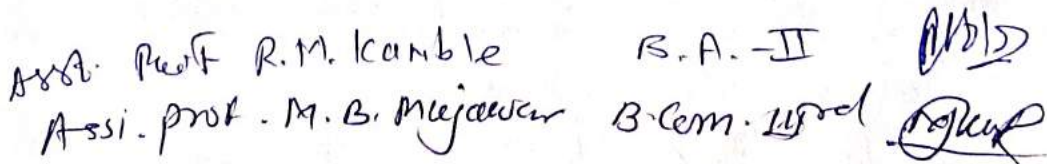 Asst. Prof R.M. Kamble B.A.-II
Assi. prof. M.B. Mujawar B.Com. IIIrd